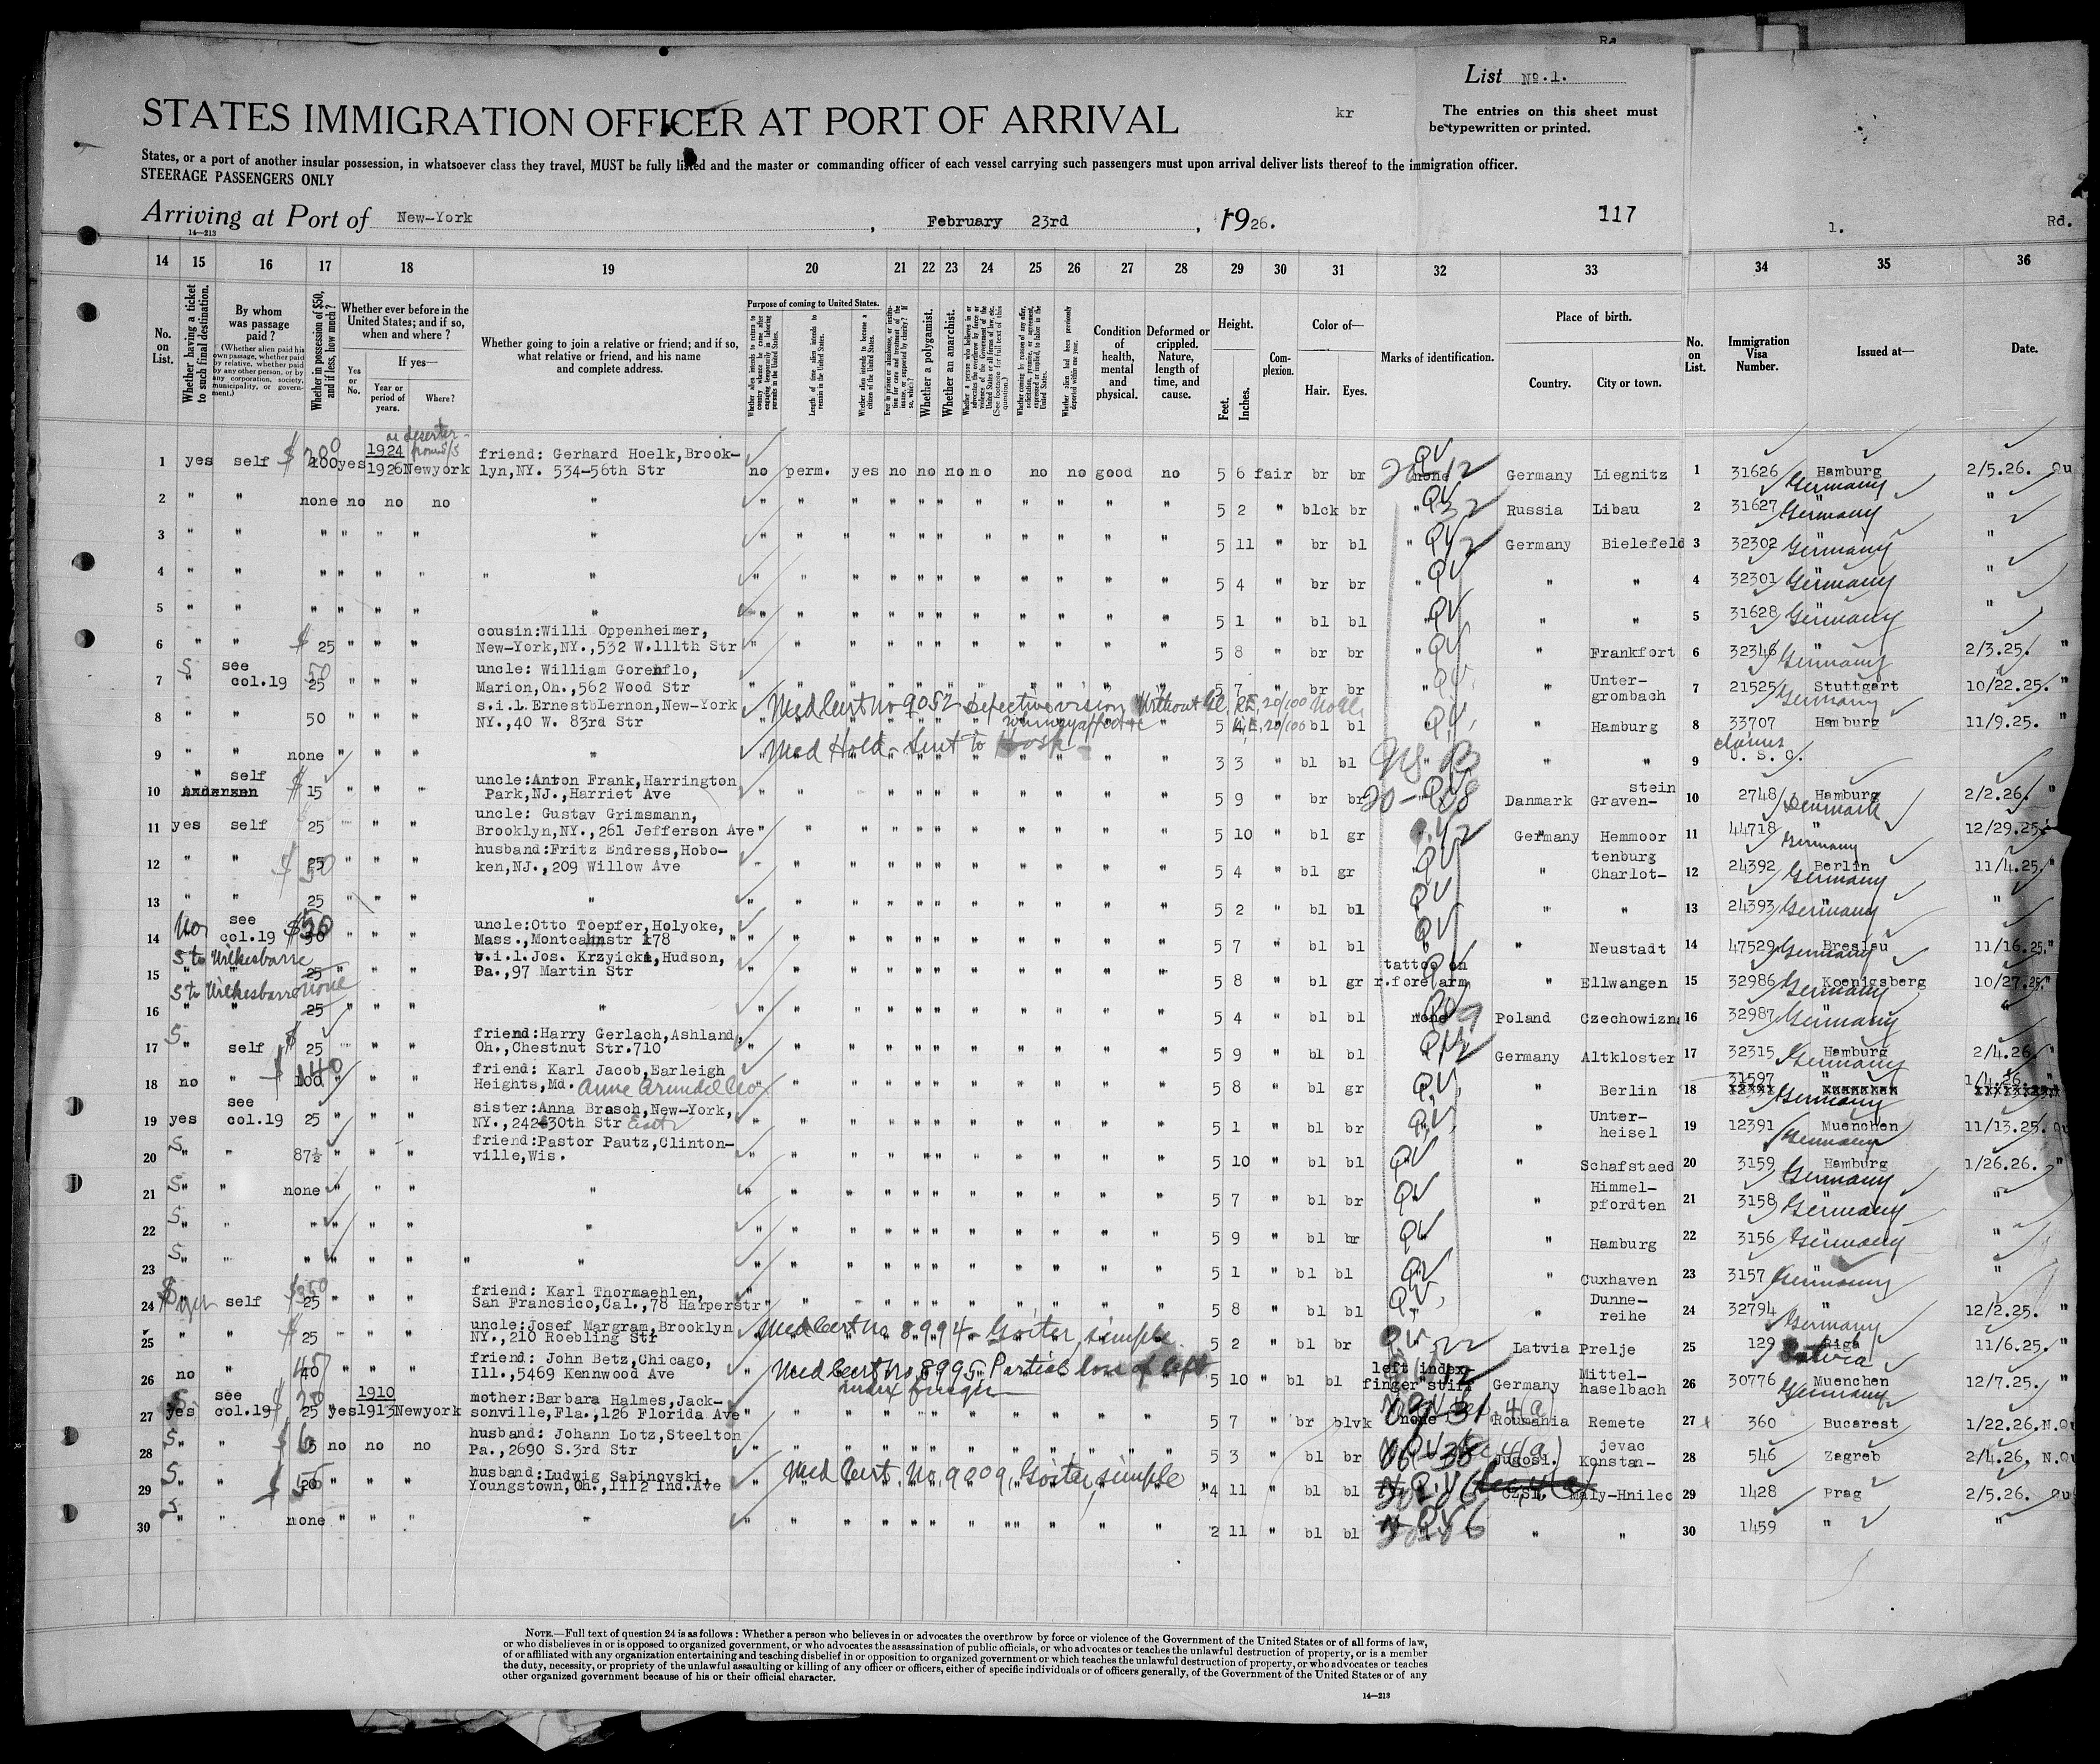 List No. 1.
STATES IMMIGRATION OFFICER AT PORT OF ARRIVAL
kr
The entries on this sheet must be typewritten or printed.
States, or a port of another insular possession, in whatsoever class they travel, MUST be fully listed and the master or commanding officer of each vessel carrying such passengers must upon arrival deliver lists thereof to the immigration officer.
STEERAGE PASSENGERS ONLY
Arriving at Port of New-York, February 23rd, 1926.
117
1. Rd.
14—213
14 15 16 17 18 19 20 21 22 23 24 25 26 27 28 29 30 31 32 33 34 35 36
No. on List.
Whether having a ticket to such final destination.
By whom was passage paid?
(Whether alien paid his own passage, whether paid by relative, whether paid by any other person, or by any corporation, society, municipality, or government.)
Whether in possession of $50, and if less, how much?
Whether ever before in the United States; and if so, when and where?
Yes or No.
If yes—
Year or period of years.
Where?
Whether going to join a relative or friend; and if so, what relative or friend, and his name and complete address.
Purpose of coming to United States.
Whether alien intends to return to country whence he came after engaging temporarily in laboring pursuits in the United States.
Length of time alien intends to remain in the United States.
Whether alien intends to become a citizen of the United States.
Whether a polygamist.
Whether an anarchist.
Condition of health, mental and physical.
Deformed or crippled. Nature, length of time, and cause.
Height.
Feet. Inches.
Complexion.
Color of—
Hair. Eyes.
Marks of identification.
Place of birth.
Country. City or town.
No. on List.
Immigration Visa Number.
Issued at—
Date.
1 yes self 200 yes 1924 1926 Newyork friend: Gerhard Hoelk, Brook-
lyn, NY. 534-56th Str no perm. yes no no no no no no good no 5 6 fair br br none Germany Liegnitz 1 31626 Hamburg Germany 2/5.26. Qu
2 " " none no no no " 5 2 " blck br " QV Russia Libau 2 31627 " Germany "
3 " " " " " " " 5 11 " br bl " QV Germany Bielefeld 3 32302 " Germany "
4 " " " " " " " 5 4 " br br " QV " " 4 32301 " Germany "
5 " " " " " " " 5 1 " bl bl " QV " " 5 31628 " Germany "
6 " " $ 25 " " " cousin: Willi Oppenheimer,
New-York, NY., 532 W. 111th Str 5 8 " br br QV " Frankfort 6 32346 " Germany 2/3.25. "
7 S " see col.19 50 25 " " " uncle: William Gorenflo,
Marion, Oh., 562 Wood Str 5 7 " br br QV " Unter-
grombach 7 21525 Stuttgart Germany 10/22.25. "
8 " " 50 " " " s.i.l. Ernest Lernon, New-York
NY., 40 W. 83rd Str Med Cert no 9052 Defective vision Without Gl. RE, 20/100 LE, 20/100 5 4 bl bl QV " Hamburg 8 33707 Hamburg 11/9.25. "
9 " " none " " " " Med Hold - Sent to Hosp - 3 3 " bl bl " " 9 claims U. S. C.
10 " self Andersen $ 15 " " " uncle: Anton Frank, Harrington
Park, NJ., Harriet Ave 5 9 " br br Danmark Graven-
stein 10 2748 Hamburg Denmark 2/2.26. "
11 yes self 25 " " " uncle: Gustav Grimsmann,
Brooklyn, NY., 261 Jefferson Ave 5 10 " bl gr Germany Hemmoor 11 44718 " Germany 12/29.25. "
12 " " $ 50 25 " " " husband: Fritz Endress, Hobo-
ken, NJ., 209 Willow Ave 5 4 " bl gr QV " Charlot-
tenburg 12 24392 Berlin Germany 11/4.25. "
13 " " 25 " " " " 5 2 " bl bl QV " " 13 24393 " Germany "
14 No see col.19 $50 " " " uncle: Otto Toepfer, Holyoke,
Mass., Montcalmstr 178 5 7 " bl bl QV " Neustadt 14 47529 Breslau Germany 11/16.25. "
15 S to Wilkesbarre " 25 " " " b.i.l. Jos. Krzyicki, Hudson,
Pa., 97 Martin Str 5 8 " bl gr tattoo on
r.forearm " Ellwangen 15 32986 Koenigsberg Germany 10/27.25. "
16 S to Wilkesbarre " none 25 " " " " 5 4 " bl bl none Poland Czechowizna 16 32987 " Germany "
17 S " self $ 25 " " " friend: Harry Gerlach, Ashland,
Oh., Chestnut Str. 710 5 9 " bl bl Germany Altkloster 17 32315 Hamburg Germany 2/4.26. "
18 no " $ 140 100 " " " friend: Karl Jacob, Earleigh
Heights, Md. Anne Arundel Co 5 8 " bl gr QV " Berlin 18 31597 " Germany 1/4.26. "
19 yes see col.19 25 " " " sister: Anna Brasch, New-York,
NY., 242 30th Str East 5 1 " bl br QV " Unter-
heisel 19 12391 Muenchen Germany 11/13.25. Qu
20 S " " 87½ " " " friend: Pastor Pautz, Clinton-
ville, Wis. 5 10 " bl bl QV " Schafstaed 20 3159 Hamburg Germany 1/26.26. "
21 S " " none " " " " 5 7 " bl br QV Himmel-
pfordten 21 3158 " Germany "
22 S " " " " " " " 5 9 " bl br QV " Hamburg 22 3156 " Germany "
23 S " " " " " " " 5 1 " bl bl QV " Cuxhaven 23 3157 " Germany "
24 " self $350 25 " " " friend: Karl Thormaehlen,
San Francsico, Cal., 78 Harperstr 5 8 " bl bl QV " Dunne-
reihe 24 32794 " Germany 12/2.25. "
25 " " $ 25 " " " uncle: Josef Margram, Brooklyn
NY., 210 Roebling Str Med Cert no 8994 - Goiter, simple 5 2 " bl br QV Latvia Prelje 25 129 Riga Latvia 11/6.25. "
26 no " 45 40 " " " friend: John Betz, Chicago,
Ill., 5469 Kennwood Ave Med Cert no 8995 Partial loss of left
index finger 5 10 " bl bl left index-
finger stiff Germany Mittel-
haselbach 26 30776 Muenchen Germany 12/7.25. "
27 S yes see col.19 $ 25 yes 1910 1913 Newyork mother: Barbara Halmes, Jack-
sonville, Fla., 126 Florida Ave 5 7 " br blvk none 4(a) Roumania Remete 27 360 Bucarest 1/22.26. N.Qu
28 S " " no no no husband: Johann Lotz, Steelton
Pa., 2690 S. 3rd Str 5 3 " bl br 4(a) Jugosl. Konstan-
jevac 28 546 Zagreb 2/4.26. N.Qu
29 S " " $ " " " husband: Ludwig Sabinovski,
Youngstown, Oh., 1112 Ind. Ave Med Cert. No. 9009, Goiter, simple 4 11 " bl bl CZSl. Maly-Hnilec 29 1428 Prag 2/5.26. Qu
30 S " " none " " " " 2 11 " bl bl " " 30 1459 " "
NOTE.—Full text of question 24 is as follows: Whether a person who believes in or advocates the overthrow by force or violence of the Government of the United States or of all forms of law,
or who disbelieves in or is opposed to organized government, or who advocates the assassination of public officials, or who advocates or teaches the unlawful destruction of property, or is a member
of or affiliated with any organization entertaining and teaching disbelief in or opposition to organized government or which teaches the unlawful destruction of property, or who advocates or teaches
the duty, necessity, or propriety of the unlawful assaulting or killing of any officer or officers, either of specific individuals or of officers generally, of the Government of the United States or of any
other organized government because of his or their official character.
14—213